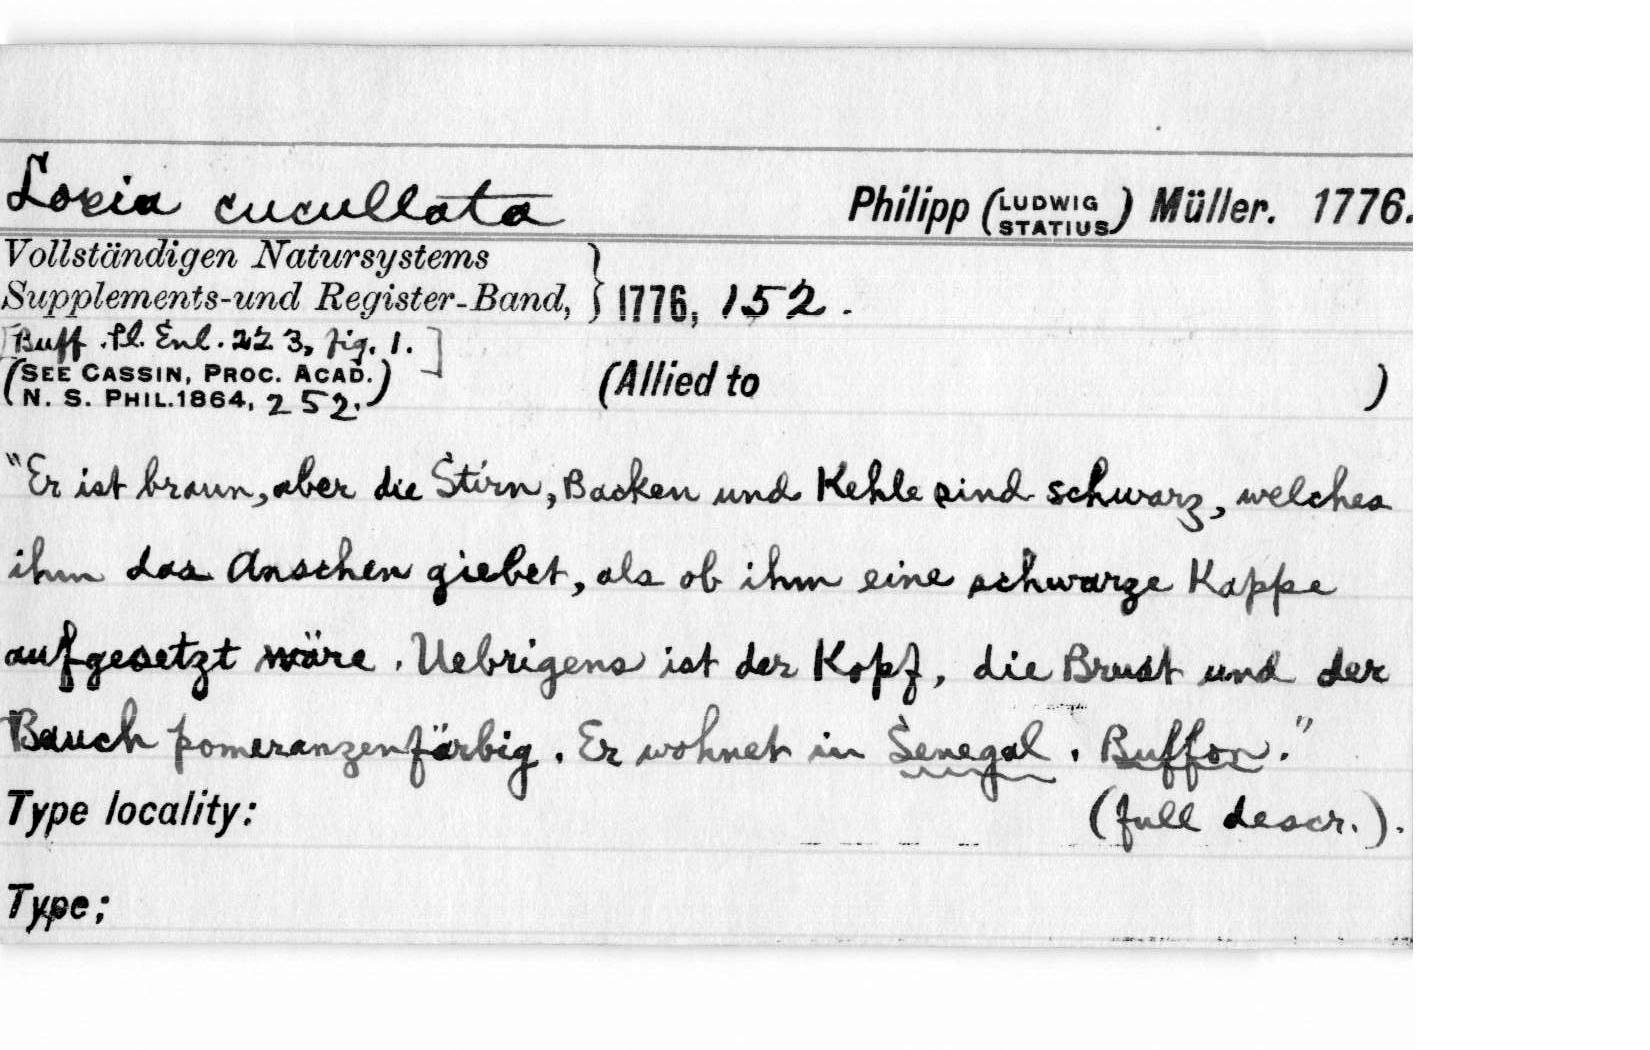 Loxia cucullata Philipp (LUDWIG STATIUS) Müller. 1776.
Vollständigen Natursystems
Supplements-und Register-Band, } 1776, 152.
[Buff. Pl. Enl. 223, fig. 1.]
(SEE CASSIN, PROC. ACAD.
N. S. PHIL. 1864, 252.) (Allied to )
"Er ist braun, aber die Stirn, Backen und Kehle sind schwarz, welches
ihm das Anschen giebet, als ob ihm eine schwarze Kappe
aufgesetzt wäre. Uebrigens ist der Kopf, die Brust und der
Bauch pomeranzenfärbig. Er wohnet in Senegal. Buffon."
Type locality: (full descr.).
Type;